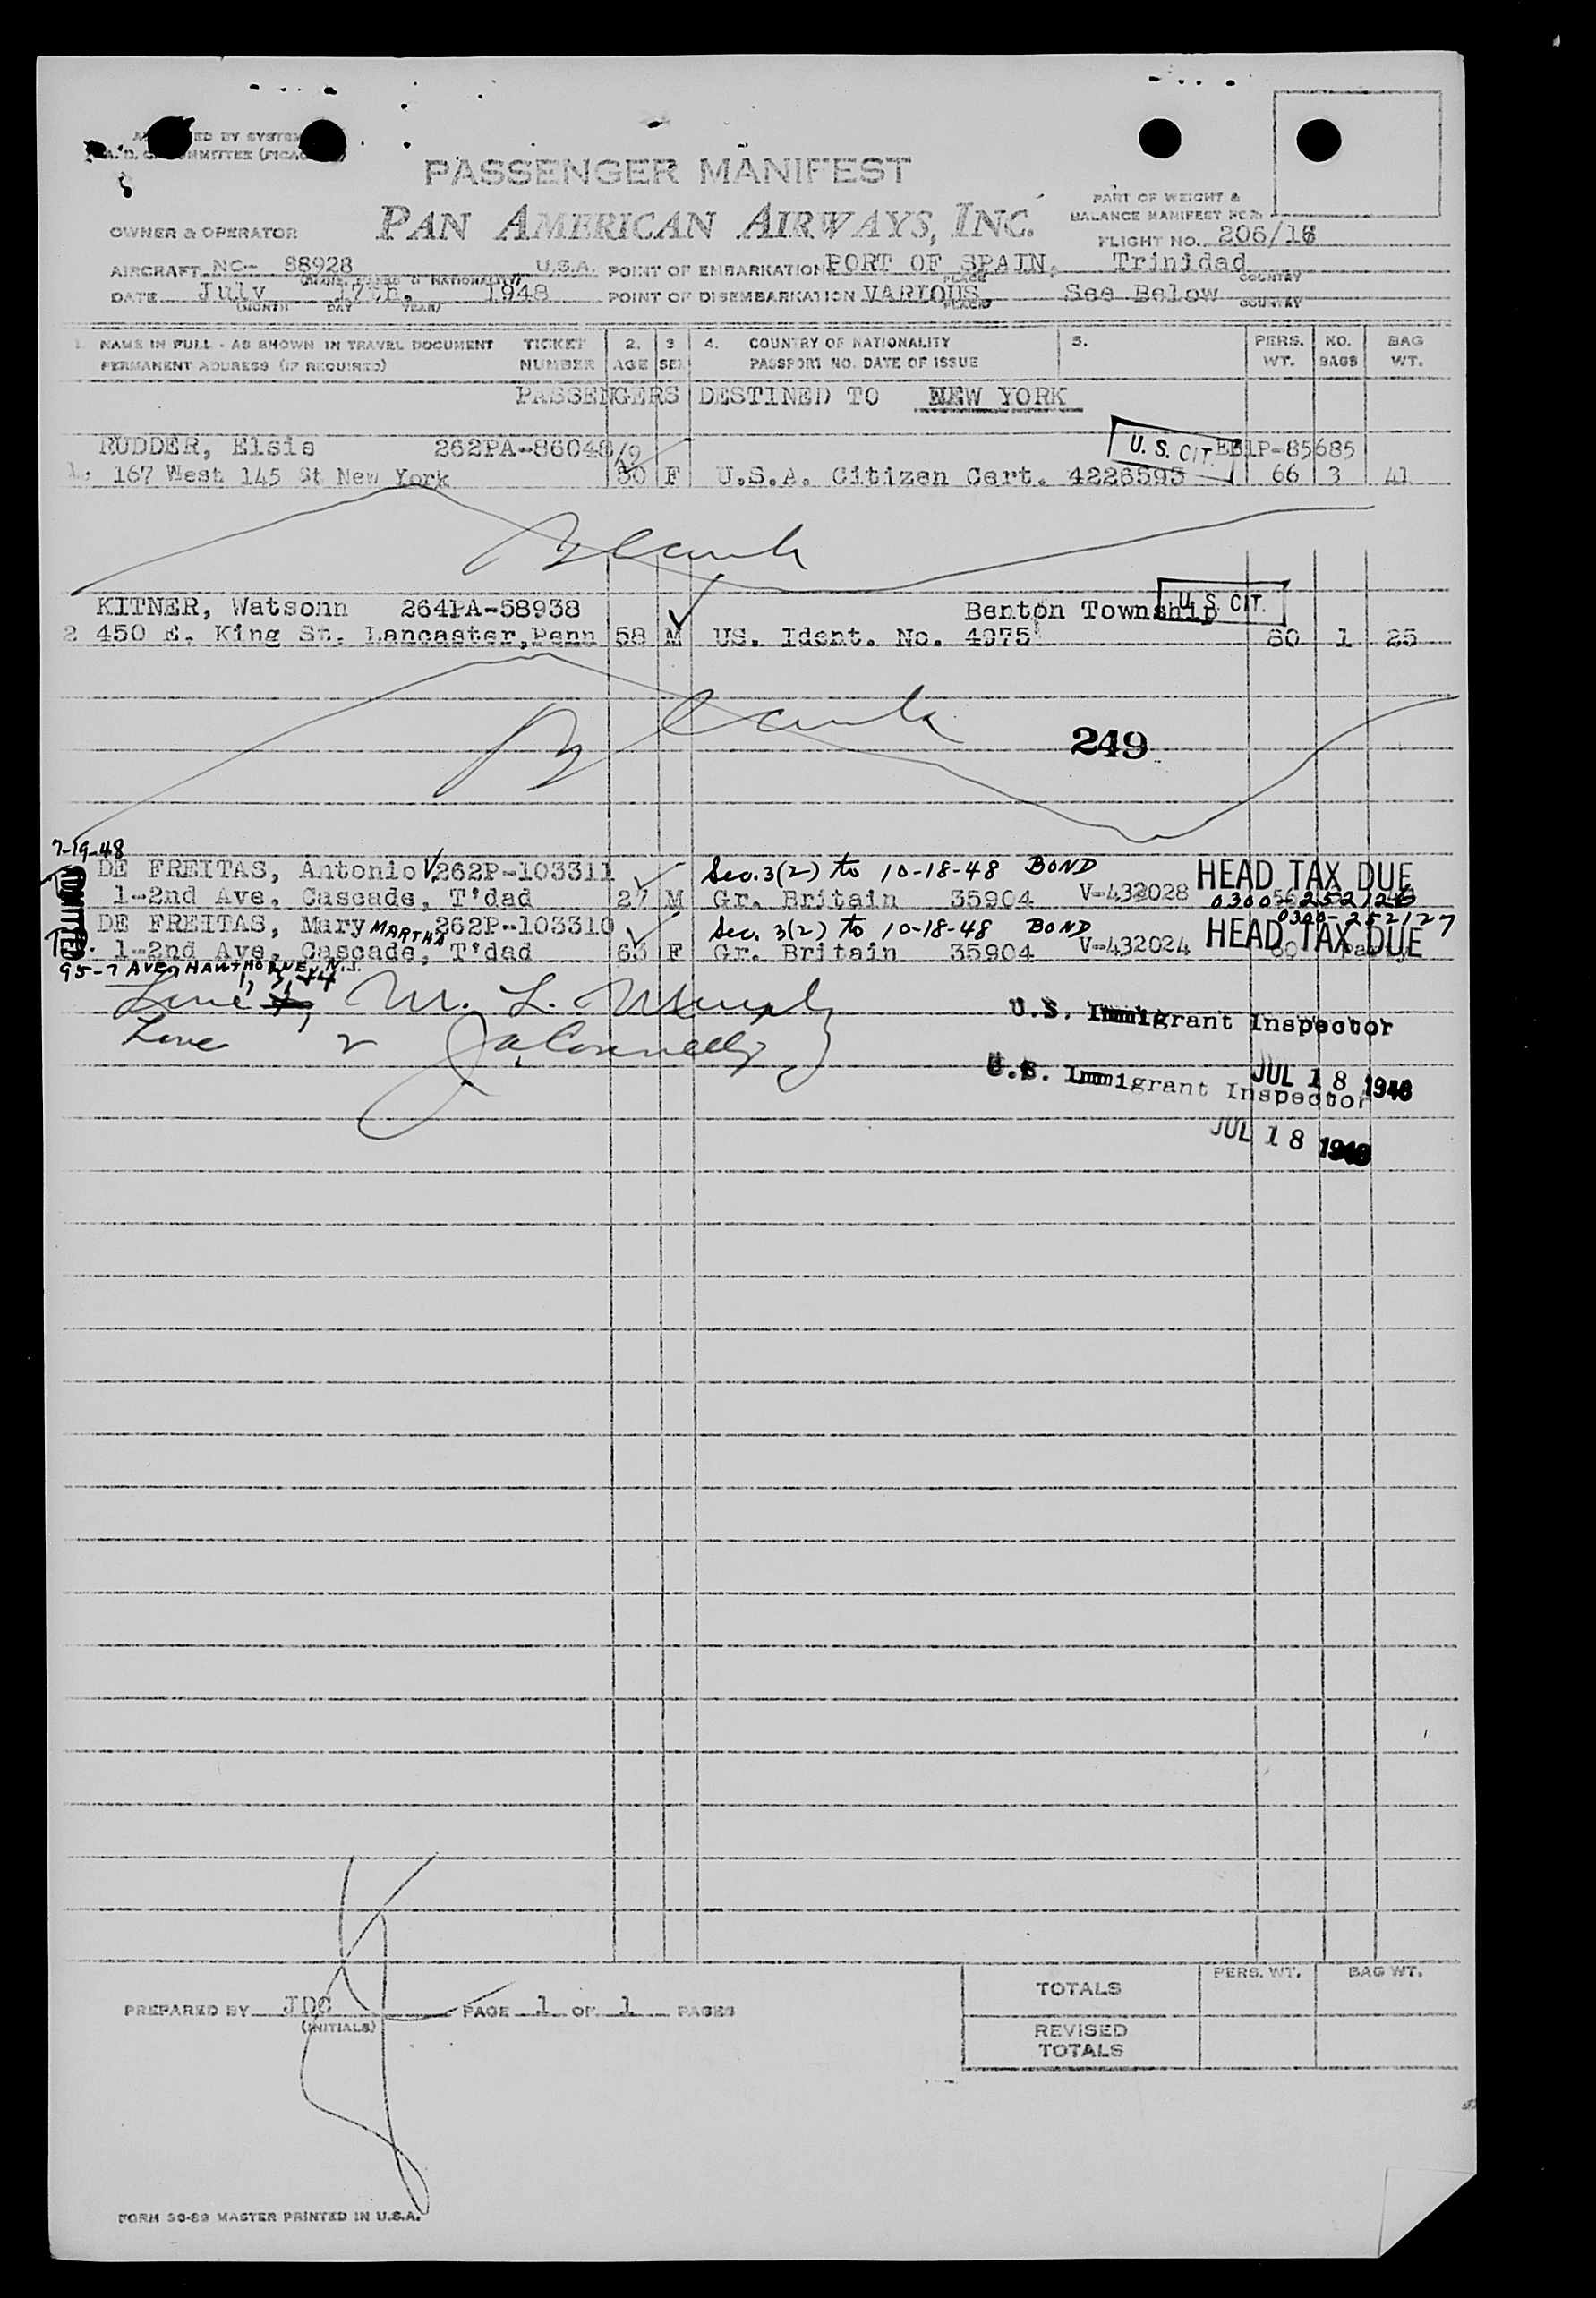 PASSENGER MANIFEST
PAN AMERICAN AIRWAYS, INC.
PART OF WEIGHT &
BALANCE MANIFEST FOR
OWNER & OPERATOR
FLIGHT NO. 206/
AIRCRAFT NC- 88928 U.S.A. POINT OF EMBARKATION PORT OF SPAIN, Trinidad
PLACE COUNTRY
DATE July 17th, 1948 POINT OF DISEMBARKATION VARIOUS See Below
(MONTH DAY YEAR) PLACE COUNTRY
1. NAME IN FULL - AS SHOWN IN TRAVEL DOCUMENT TICKET 2. 3 4. COUNTRY OF NATIONALITY 5. PERS. NO. BAG
PERMANENT ADDRESS (IF REQUIRED) NUMBER AGE SEX PASSPORT NO. DATE OF ISSUE WT. BAGS WT.
PASSENGERS DESTINED TO NEW YORK
RUDDER, Elsie 262PA-86048/9 U.S. CIT. 1P-85685
1. 167 West 145 St New York 50 F U.S.A. Citizen Cert. 4226593 66 3 41
Blank
KITNER, Watsonn 264PA-58938 Benton Township U.S. CIT.
2 450 E. King St. Lancaster, Penn 58 M US. Ident. No. 4975 80 1 25
Blank
249
7-19-48
DE FREITAS, Antonio V. 262P-103311 Sec. 3(2) to 10-18-48 BOND HEAD TAX DUE
ADMITTED 1-2nd Ave. Cascade, T'dad 27 M Gr. Britain 35904 V-432028 0300-252126
DE FREITAS, Mary MARTHA 262P-103310 Sec. 3(2) to 10-18-48 BOND 0300-252127
1-2nd Ave. Cascade, T'dad 63 F Gr. Britain 35904 V-432024 HEAD TAX DUE
95-7 AVE, HAWTHORNE, N.J.
Line 1, 3, + 4 M. L. Murphy U.S. Immigrant Inspector
Line 2 JUL 18 1948
U.S. Immigrant Inspector
JUL 18 1948
PREPARED BY JDC PAGE 1 OF 1 PAGES
(INITIALS)
PERS. WT. BAG WT.
TOTALS
REVISED
TOTALS
FORM 96-89 MASTER PRINTED IN U.S.A.